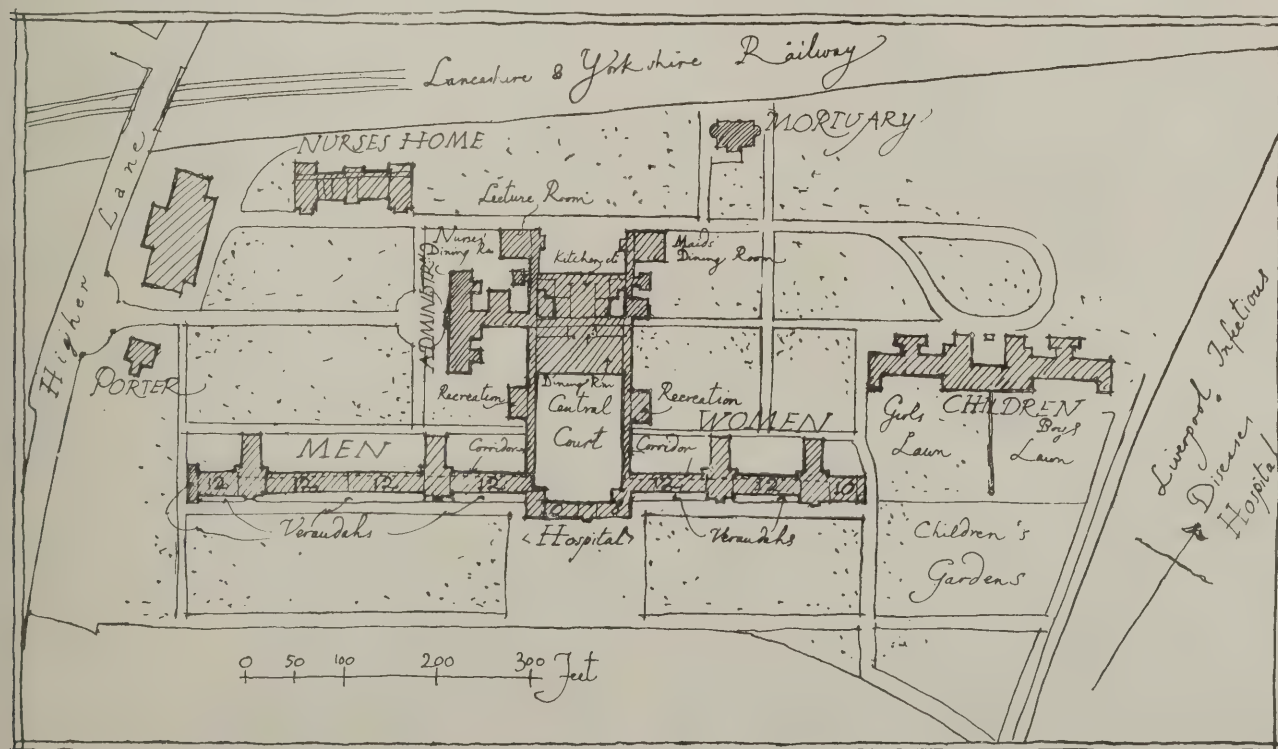 Lancashire & Yorkshire Railway
Higher Lane
NURSES HOME
MORTUARY
Lecture Room
Nurses'
Dining Rm
Kitchen etc
Maids'
Dining Room
ADMINISTRN
PORTER
Recreation
Dining Rm
Central
Court
Recreation
MEN
WOMEN
Corridor
Corridor
12
12
12
12
12
12
10
Verandahs
<Hospital>
Verandahs
CHILDREN
Girls
Lawn
Boys
Lawn
Children's
Gardens
Liverpool Infectious
Diseases
Hospital
0 50 100 200 300 Feet